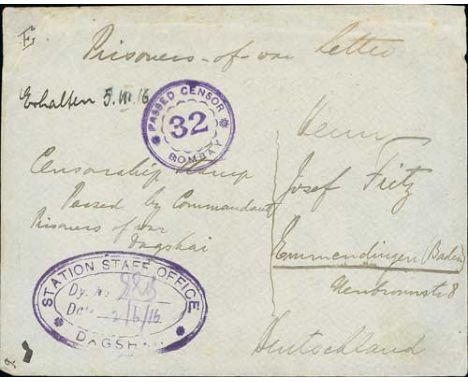 E.
Prisoners-of-war letter
Erhalten 5.VII.16
PASSED CENSOR
32
BOMBAY
Censorship Stamp
Passed by Commandant
Prisoners of war
Dagshai
STATION STAFF OFFICE
Dy. No
Date 2/6/16
DAGSHAI
Herrn
Josef Fritz
Emmendingen (Baden)
Deutschland